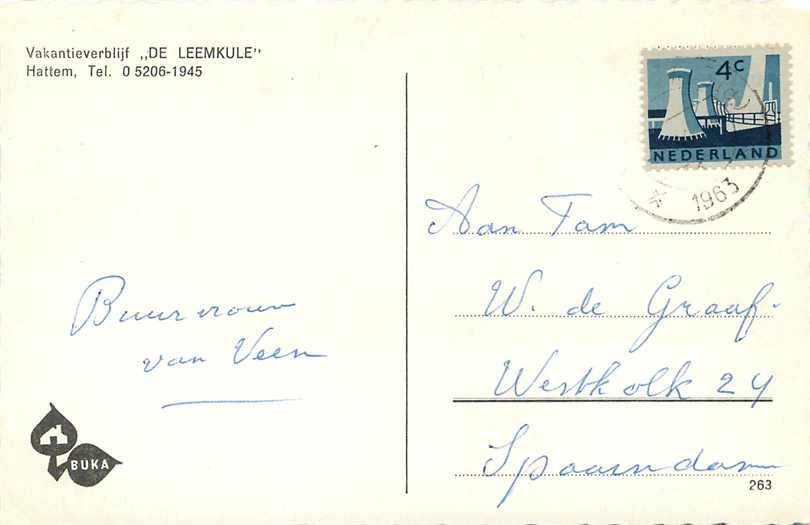 Vakantieverblijf „DE LEEMKULE"
Hattem, Tel. 0 5206-1945
4c
NEDERLAND
1963
Aan Fam
W. de Graaf.
Westkolk 24
Spaarndam
Buurvrouw
van Veen
BUKA
263